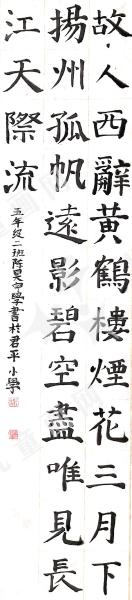 故人西辭黃鶴樓煙花三月下
揚州孤帆遠影碧空盡唯見長
江天際流
五年级二班學書於君平小學